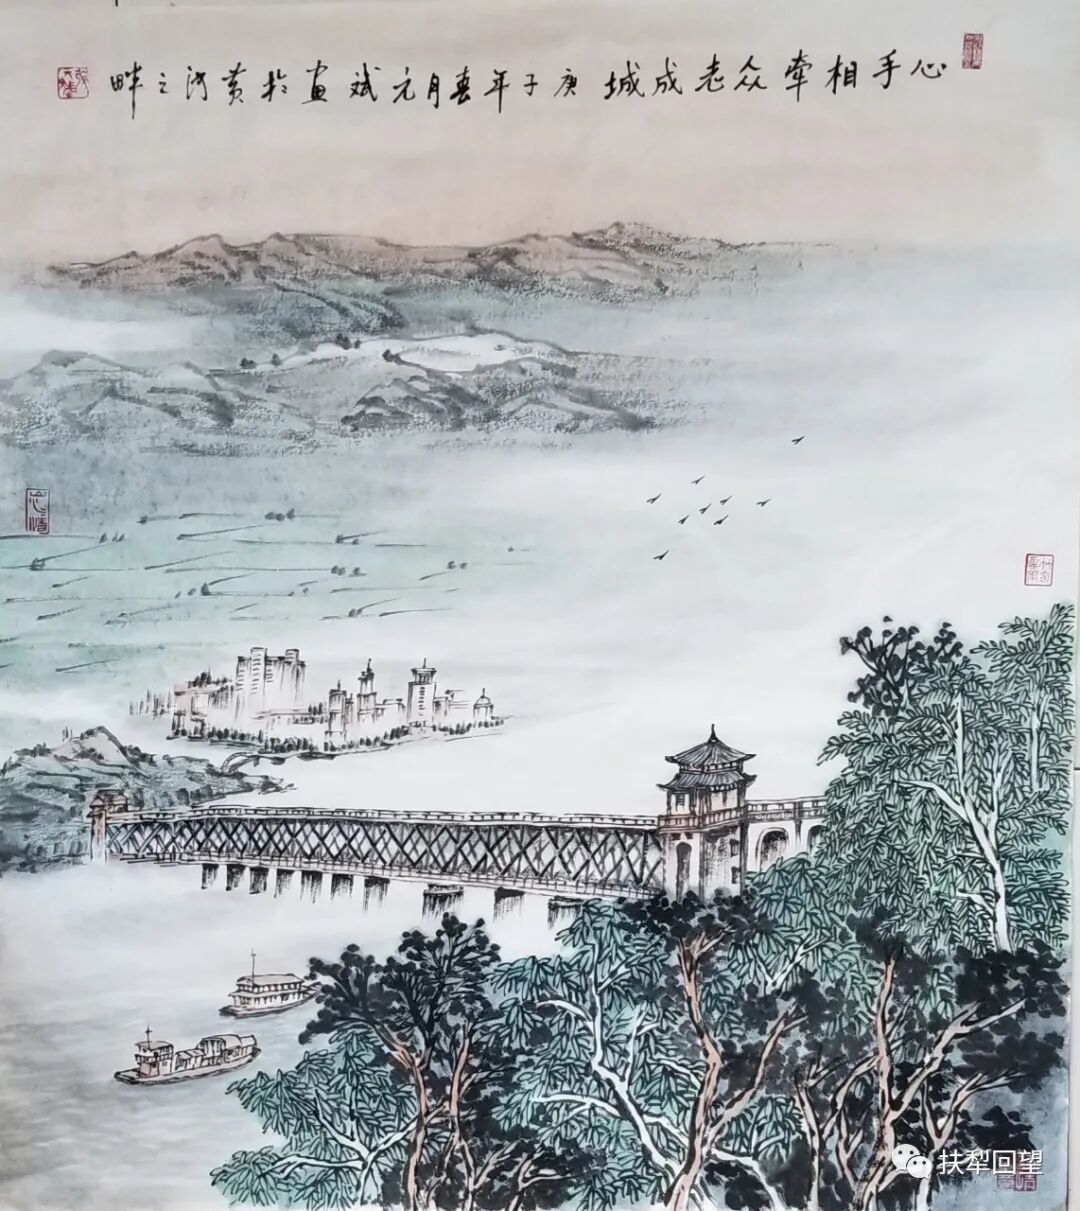 心手相牵众志成城 庚子年春月元斌画於黄河之畔
扶犁回望